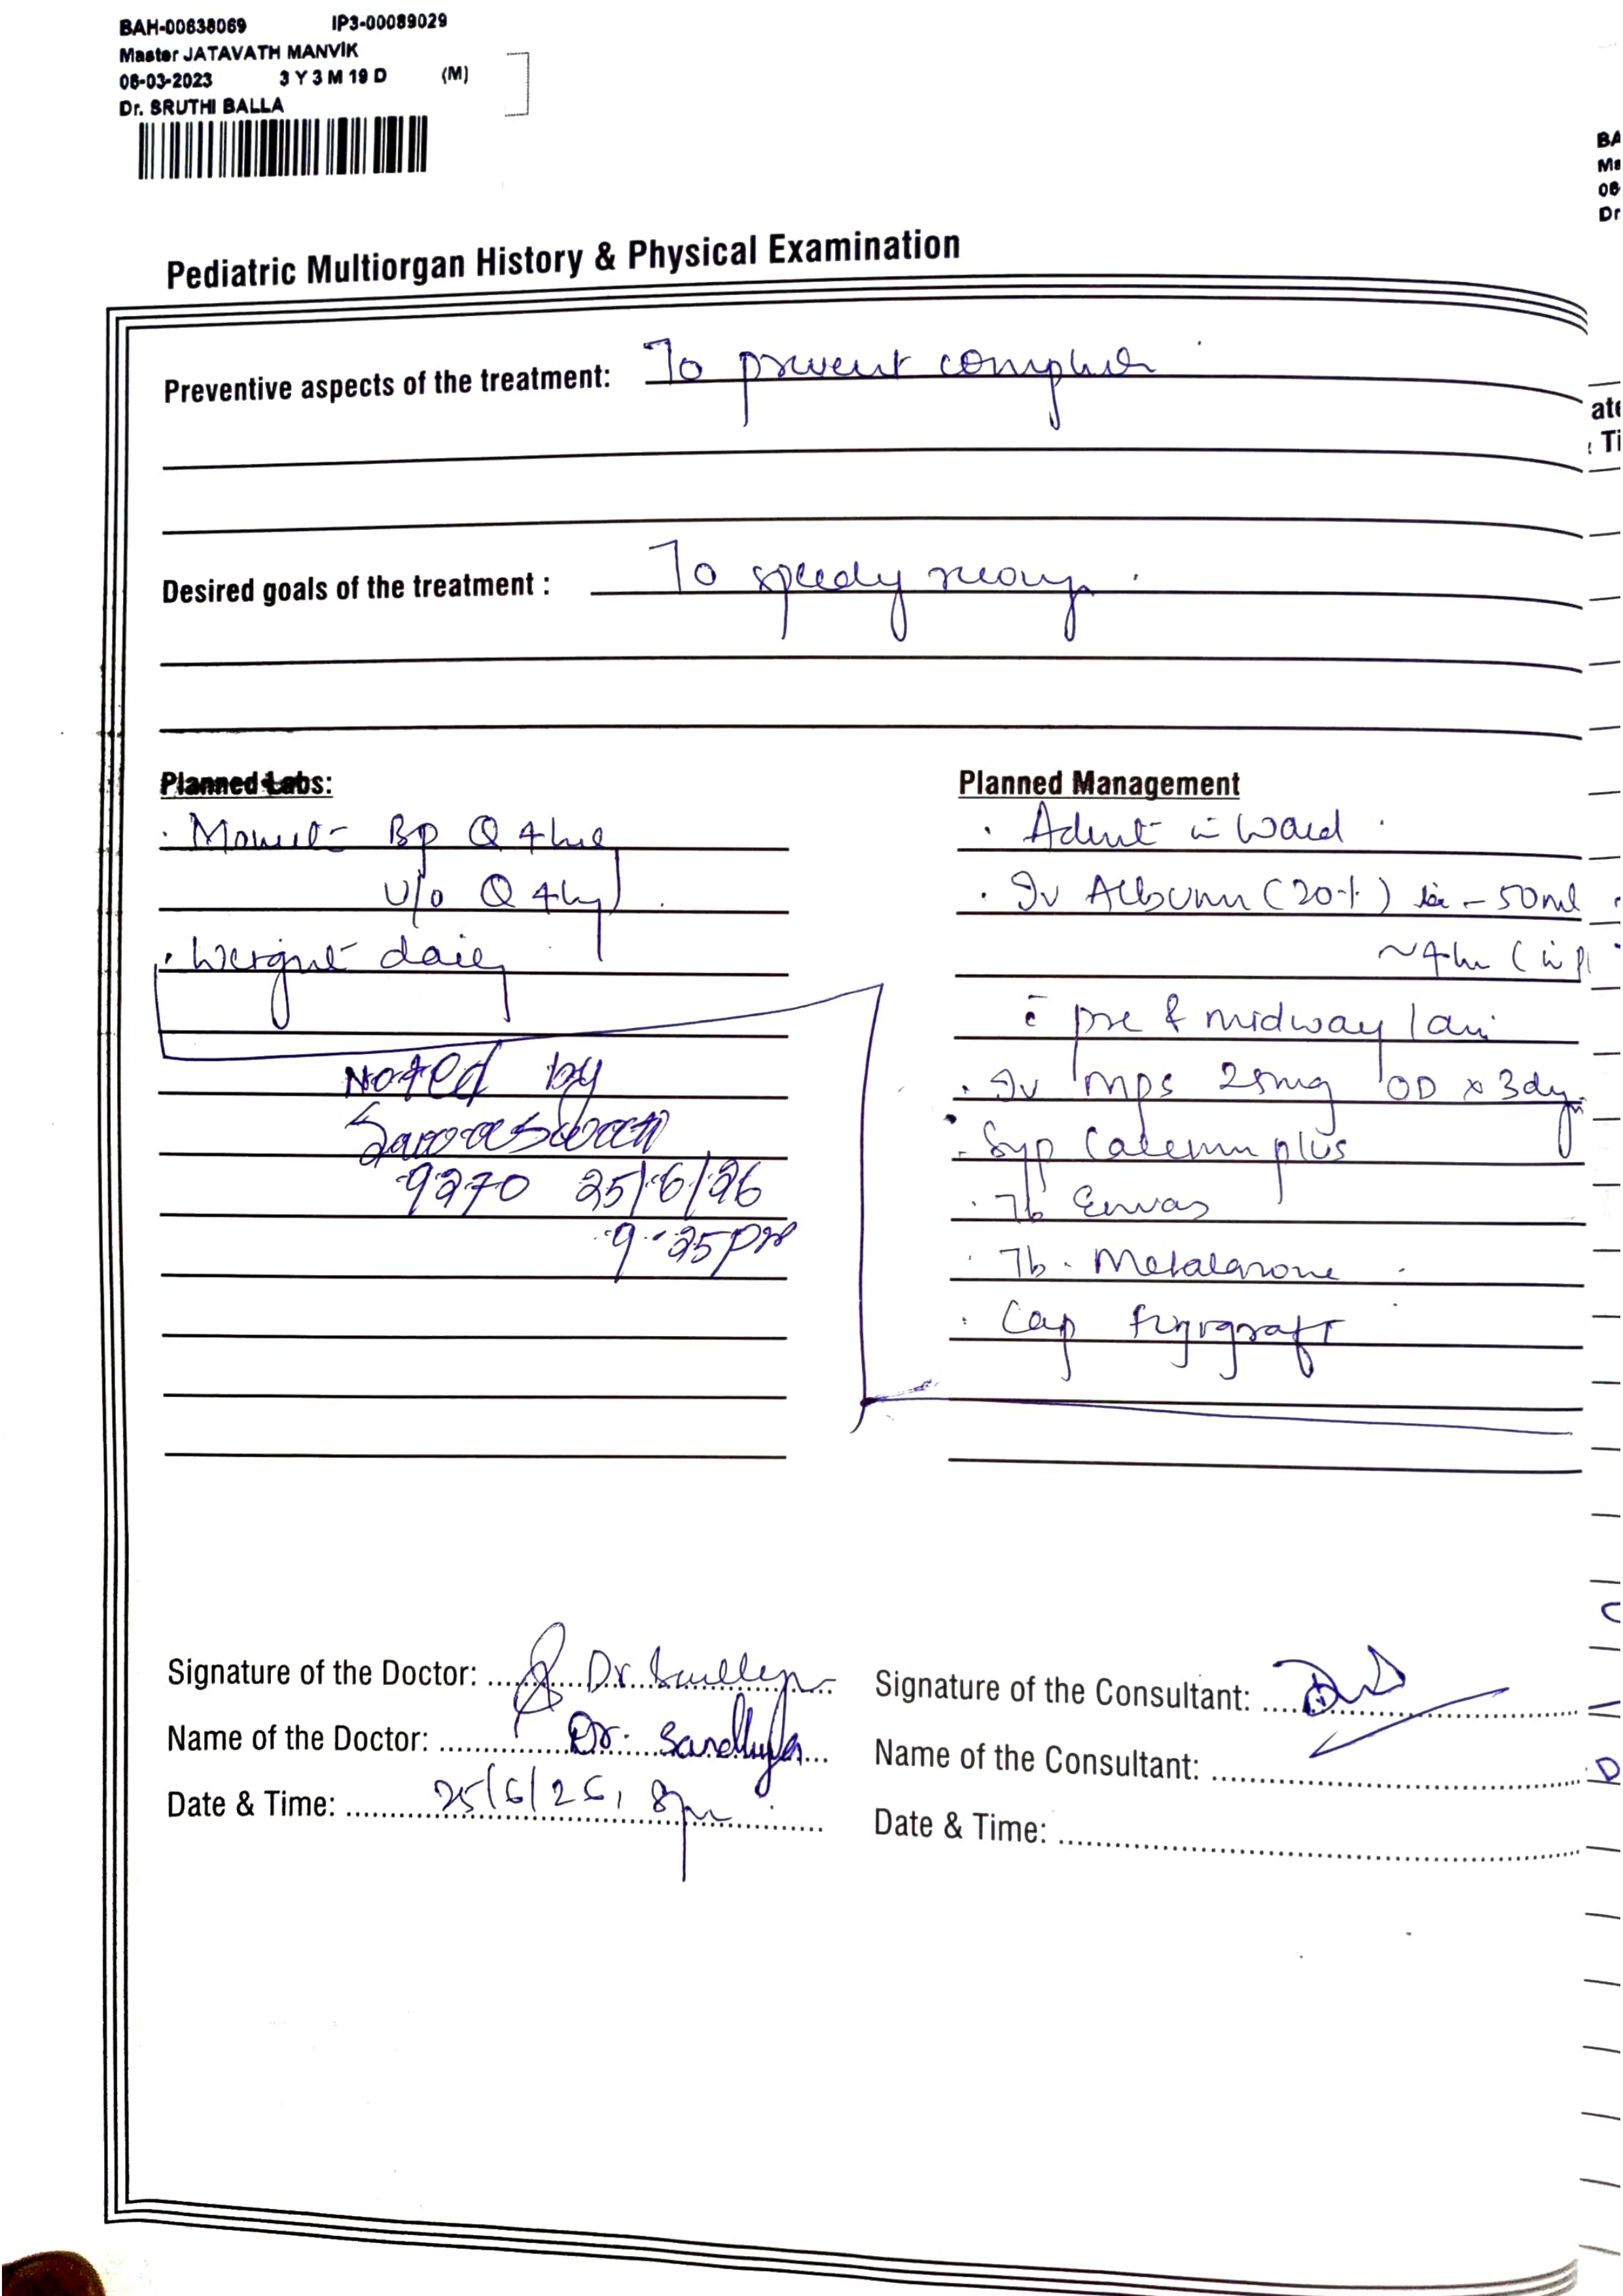 BAH-00638069 IP3-00089029
Master JATAVATH MANVIK
06-03-2023 3 Y 3 M 19 D (M)
Dr. SRUTHI BALLA
Pediatric Multiorgan History & Physical Examination
Preventive aspects of the treatment: To prevent
Desired goals of the treatment : To speedy
Planned Labs:
BP Q 4
U/o Q 4
Weight daily
Noted by
9270 25/6/26
9-25pm
Planned Management
Admit in Ward
Iv Albumin (20%) - 50ml
~4hr (
c̄ pre & midway
Iv MPS 25mg OD x 3days
Syp Calcium plus
Tb Envas
Tb. Metolazone
Cap
Signature of the Doctor: Dr.
Name of the Doctor: Dr. Sandhya
Date & Time: 25/6/26, 8pm
Signature of the Consultant:
Name of the Consultant:
Date & Time: